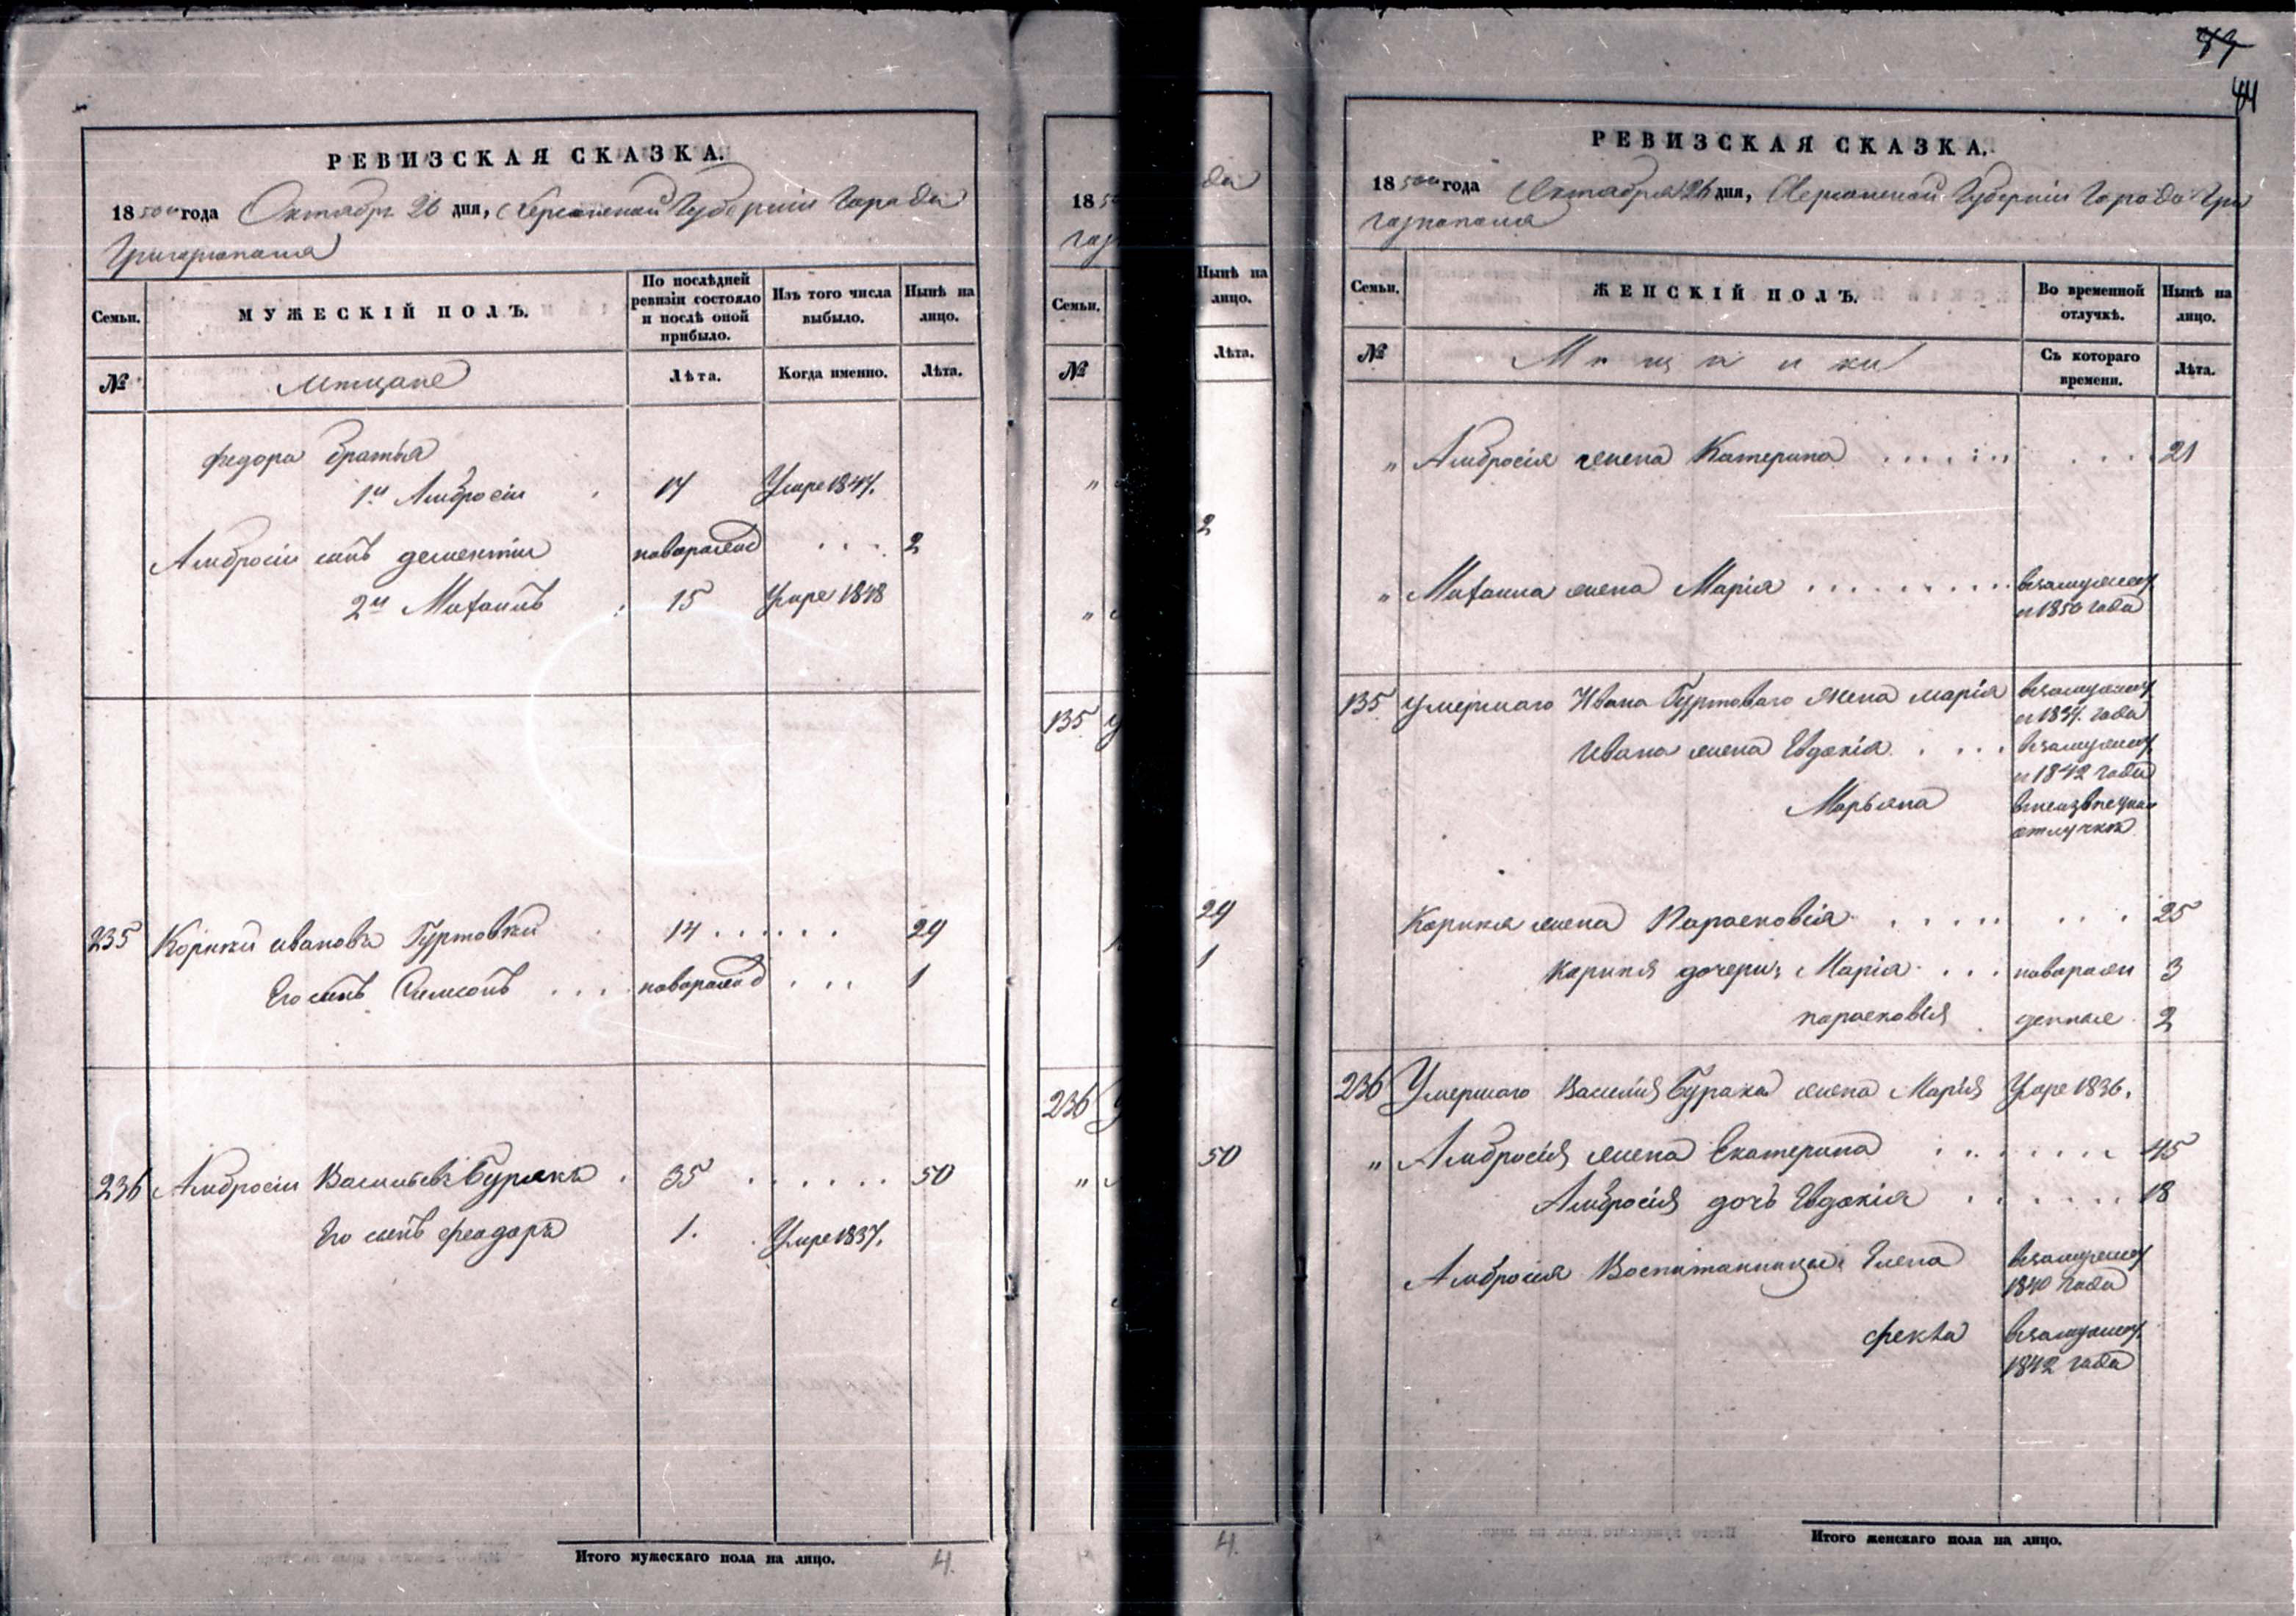 РЕВИЗСКАЯ СКАЗКА.
1850го года Октября 26 дня, Херсонской Губерніи Города
Григоріополя
Семьи.
МУЖЕСКІЙ ПОЛЪ.
По послѣдней
ревизіи состояло
и послѣ оной
прибыло.
Изъ того числа
выбыло.
Нынѣ на
лицо.
№
Мѣщане
Лѣта.
Когда именно.
Лѣта.
Федора братья
1й Амбросій 17 Умре 1847.
Амбросія сынъ Дементій новорожд ... 2
2й Михаилъ 15 Умре 1848
235 Корнѣй Ивановъ Гуртовый 14 ...... 29
Его сынъ Симеонъ ... новорожд ... 1
236 Амбросій Васильевъ Буракъ 35 ...... 50
Его сынъ Феодоръ 1. Умре 1837.
Итого мужескаго пола на лицо. 4.
18 50
гор
Семьи.
№
"
"
135 У
236 У
"
да
Нынѣ на
лицо.
Лѣта.
2
29
1
50
4.
43
44
РЕВИЗСКАЯ СКАЗКА.
1850го года Октября 26 дня, Херсонской Губерніи Города Гри
горіополя
Семьи.
ЖЕНСКІЙ ПОЛЪ.
Во временной
отлучкѣ.
Нынѣ на
лицо.
№
Мѣщанки
Съ котораго
времени.
Лѣта.
" Амбросія жена Катерина ...... ... 21
" Михаила жена Марія ......... взамужест
с 1850 года
135 Умершаго Ивана Гуртоваго жена Марія взамужест
с 1837. года
Ивана жена Евдокія .... взамужест
с 1842 года
Марьяна
отлучкѣ
Корнея жена Парасковія ..... ... 25
Корнея дочери: Марія ... новорож 3
Парасковія денные 2
236 Умершаго Василія Бурака жена Марія Умре 1836.
" Амбросія жена Екатерина ...... 45
Амбросія дочь Евдокія ...... 18
Амбросія Воспитанницы: Елена взамужест
1840 года
Фекла взамужест
1842 года
Итого женскаго пола на лицо.